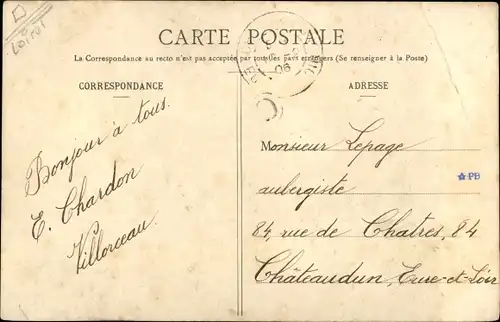 Loiret
CARTE POSTALE
La Correspondance au recto n'est pas acceptée par tous les pays étrangers (Se renseigner à la Poste)
CORRESPONDANCE
Bonjour à tous.
E. Chardon
Villorceau.
ADRESSE
Monsieur Lepage
aubergiste
84, rue de Chatres, 84
Châteaudun, Eure-et-Loir
PB